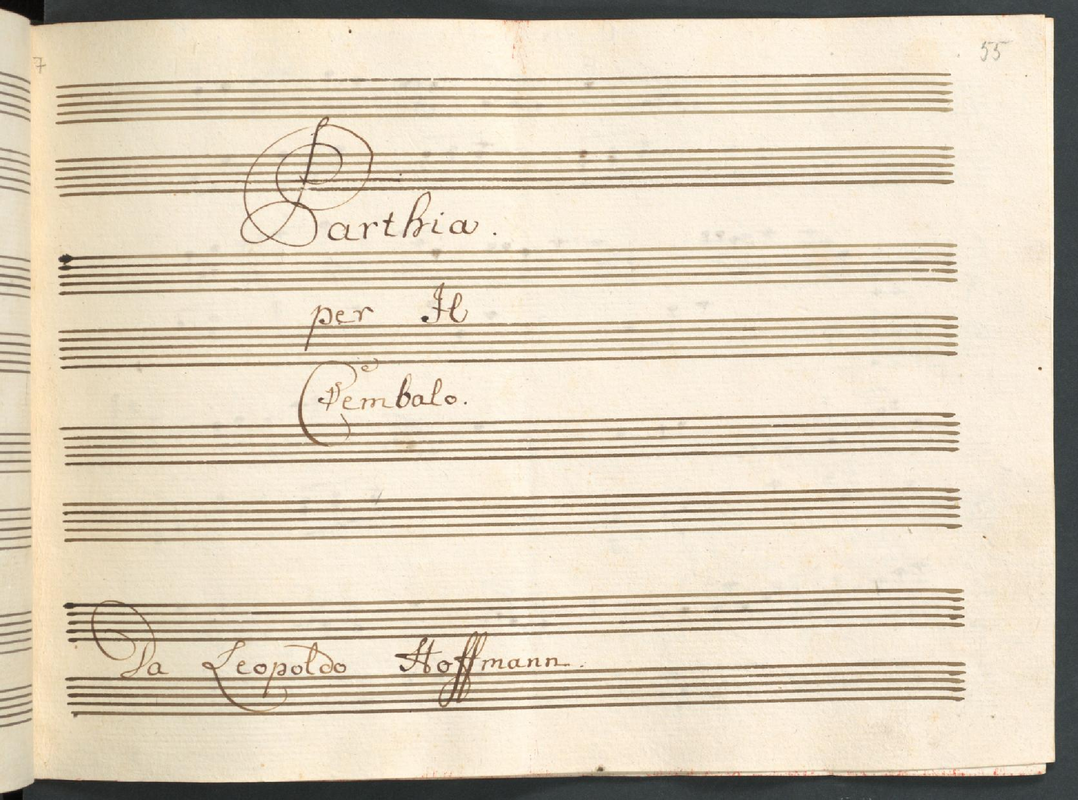 55
7
Parthia.
per Il
Cembalo.
Da Leopoldo Hoffmann.